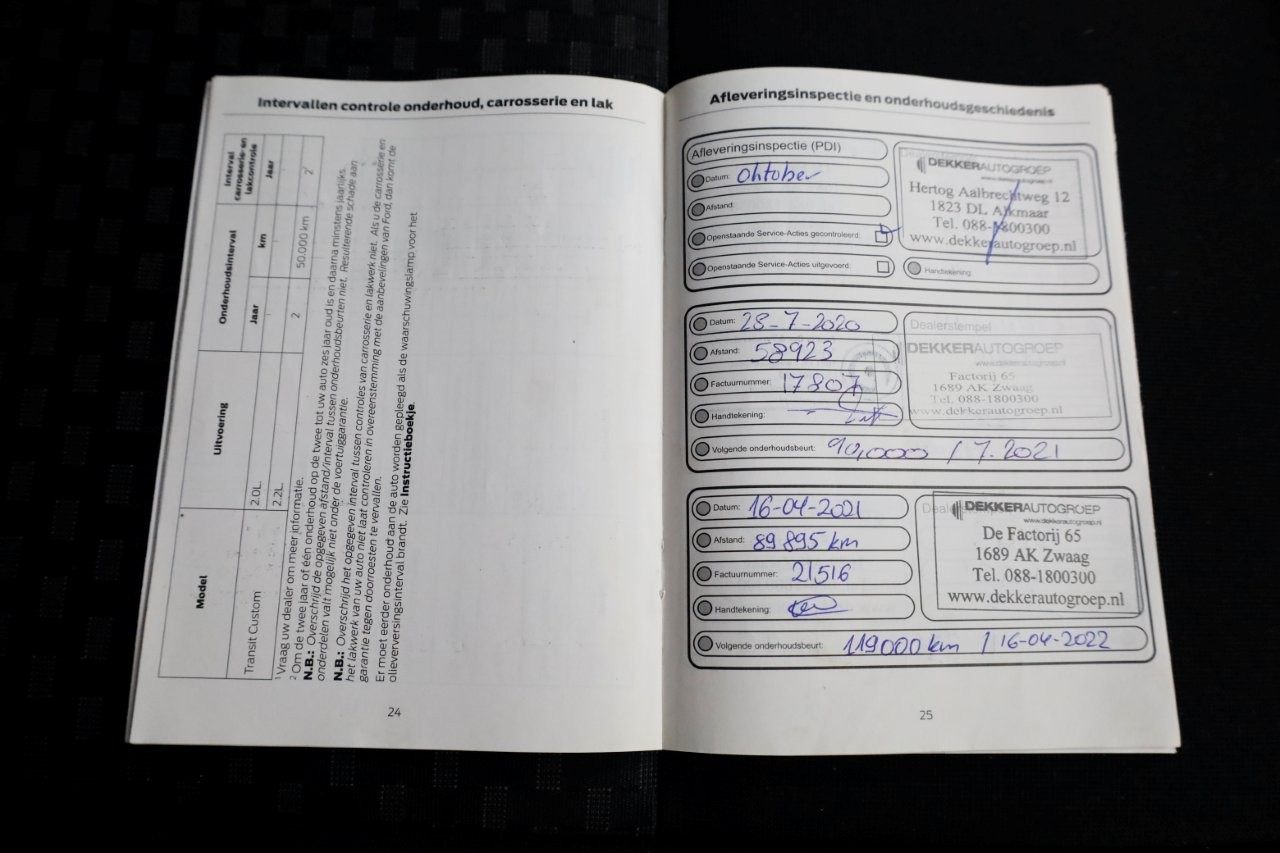 Intervallen controle onderhoud, carrosserie en lak
Model
Uitvoering
Onderhoudsinterval
Interval carrosserie- en lakcontrole
Jaar
km
Jaar
Transit Custom
2.0L
2.2L
2
50.000 km
2
¹ Vraag uw dealer om meer informatie.
² Om de twee jaar of één onderhoud op de twee tot uw auto zes jaar oud is en daarna minstens jaarlijks.
N.B.: Overschrijd de opgegeven afstand/interval tussen onderhoudsbeurten niet. Resulterende schade aan
onderdelen valt mogelijk niet onder de voertuiggarantie.
N.B.: Overschrijd het opgegeven interval tussen controles van carrosserie en lakwerk niet. Als u de carrosserie en
het lakwerk van uw auto niet laat controleren in overeenstemming met de aanbevelingen van Ford, dan komt de
garantie tegen doorroesten te vervallen.
Er moet eerder onderhoud aan de auto worden gepleegd als de waarschuwingslamp voor het
olieverversingsinterval brandt. Zie Instructieboekje.
24
Afleveringsinspectie en onderhoudsgeschiedenis
Afleveringsinspectie (PDI)
Datum: Oktober
Afstand:
Openstaande Service-Acties gecontroleerd:
Openstaande Service-Acties uitgevoerd:
DEKKERAUTOGROEP
www.dekkerautogroep.nl
Hertog Aalbrechtweg 12
1823 DL Alkmaar
Tel. 088-1800300
www.dekkerautogroep.nl
Handtekening:
Datum: 28-7-2020
Afstand: 58923
Factuurnummer: 17807
Handtekening:
Volgende onderhoudsbeurt: 90,000 / 7.2021
Dealerstempel
DEKKERAUTOGROEP
www.dekkerautogroep.nl
Factorij 65
1689 AK Zwaag
Tel. 088-1800300
www.dekkerautogroep.nl
Datum: 16-04-2021
Afstand: 89895 km
Factuurnummer: 21516
Handtekening:
Volgende onderhoudsbeurt: 119000 km / 16-04-2022
DEKKERAUTOGROEP
www.dekkerautogroep.nl
De Factorij 65
1689 AK Zwaag
Tel. 088-1800300
www.dekkerautogroep.nl
25